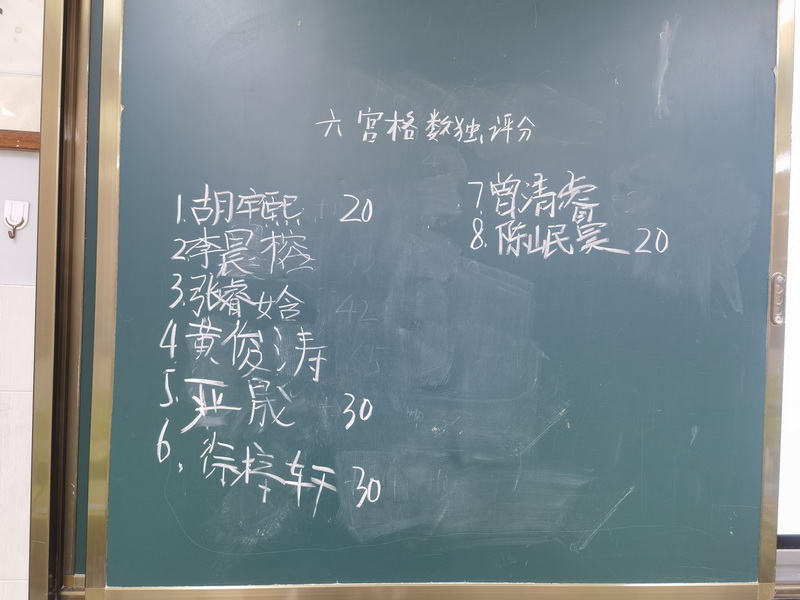 六宫格数独评分
1.胡宇熙 20
2李晨榕
3.张睿妗
4.黄俊涛
5.亚晟 30
6.徐梓轩 30
7.曾清睿
8.陈岷昊 20